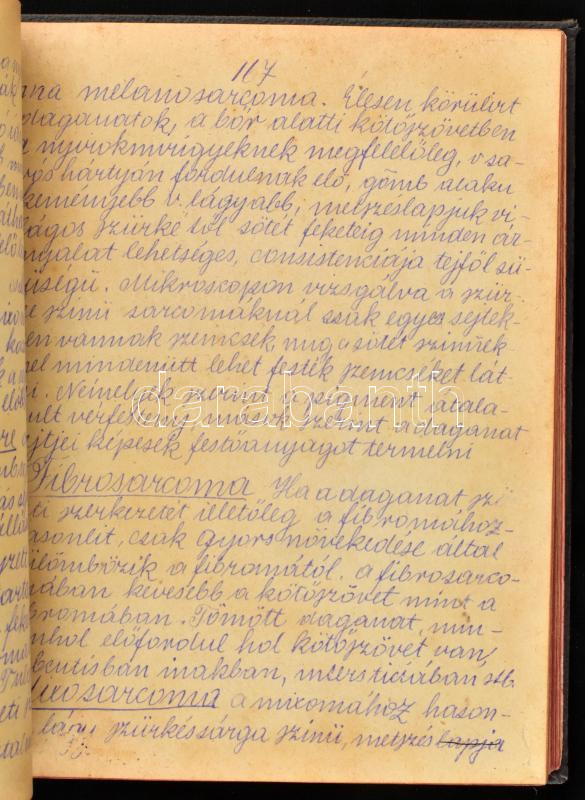 117
melanosarcoma. Élesen körülirt
daganatok, a bőr alatti kötőszövetben
a nyirokmirigyeknek megfelelőleg, v sa-
vós hártyán fordulnak elő, gömb alaku
keményebb v lágyabb, metszéslapjuk vi-
lágos szürkétől sötét feketéig minden ár-
nyalat lehetséges, consistenciája tejföl sü-
rüségü. Mikroscopon vizsgálva a szür-
ke szinü sarcomáknál csak egyes sejtek-
ben vannak szemcsék mig a sötét szinüek-
nél mindenütt lehet festék szemcséket lát-
ni. Némelyek szerint a pigment átala-
kult vérfesteny, mások szerint a daganat
sejtjei képesek festőanyagot termelni
Fibrosarcoma Ha a daganat
szerkezetét illetőleg a fibromához
hasonlit, csak gyors növekedése által
különbözik a fibromától. a fibrosarco-
mában kevesebb a kötőszövet mint a
fibromában. Tömött daganat, min-
denhol előfordul hol kötőszövet van,
cutisban inakban, intersticiában stb.
Mixosarcoma a mixomához hason-
szürkéssárga szinü, metszéslapja
databanth